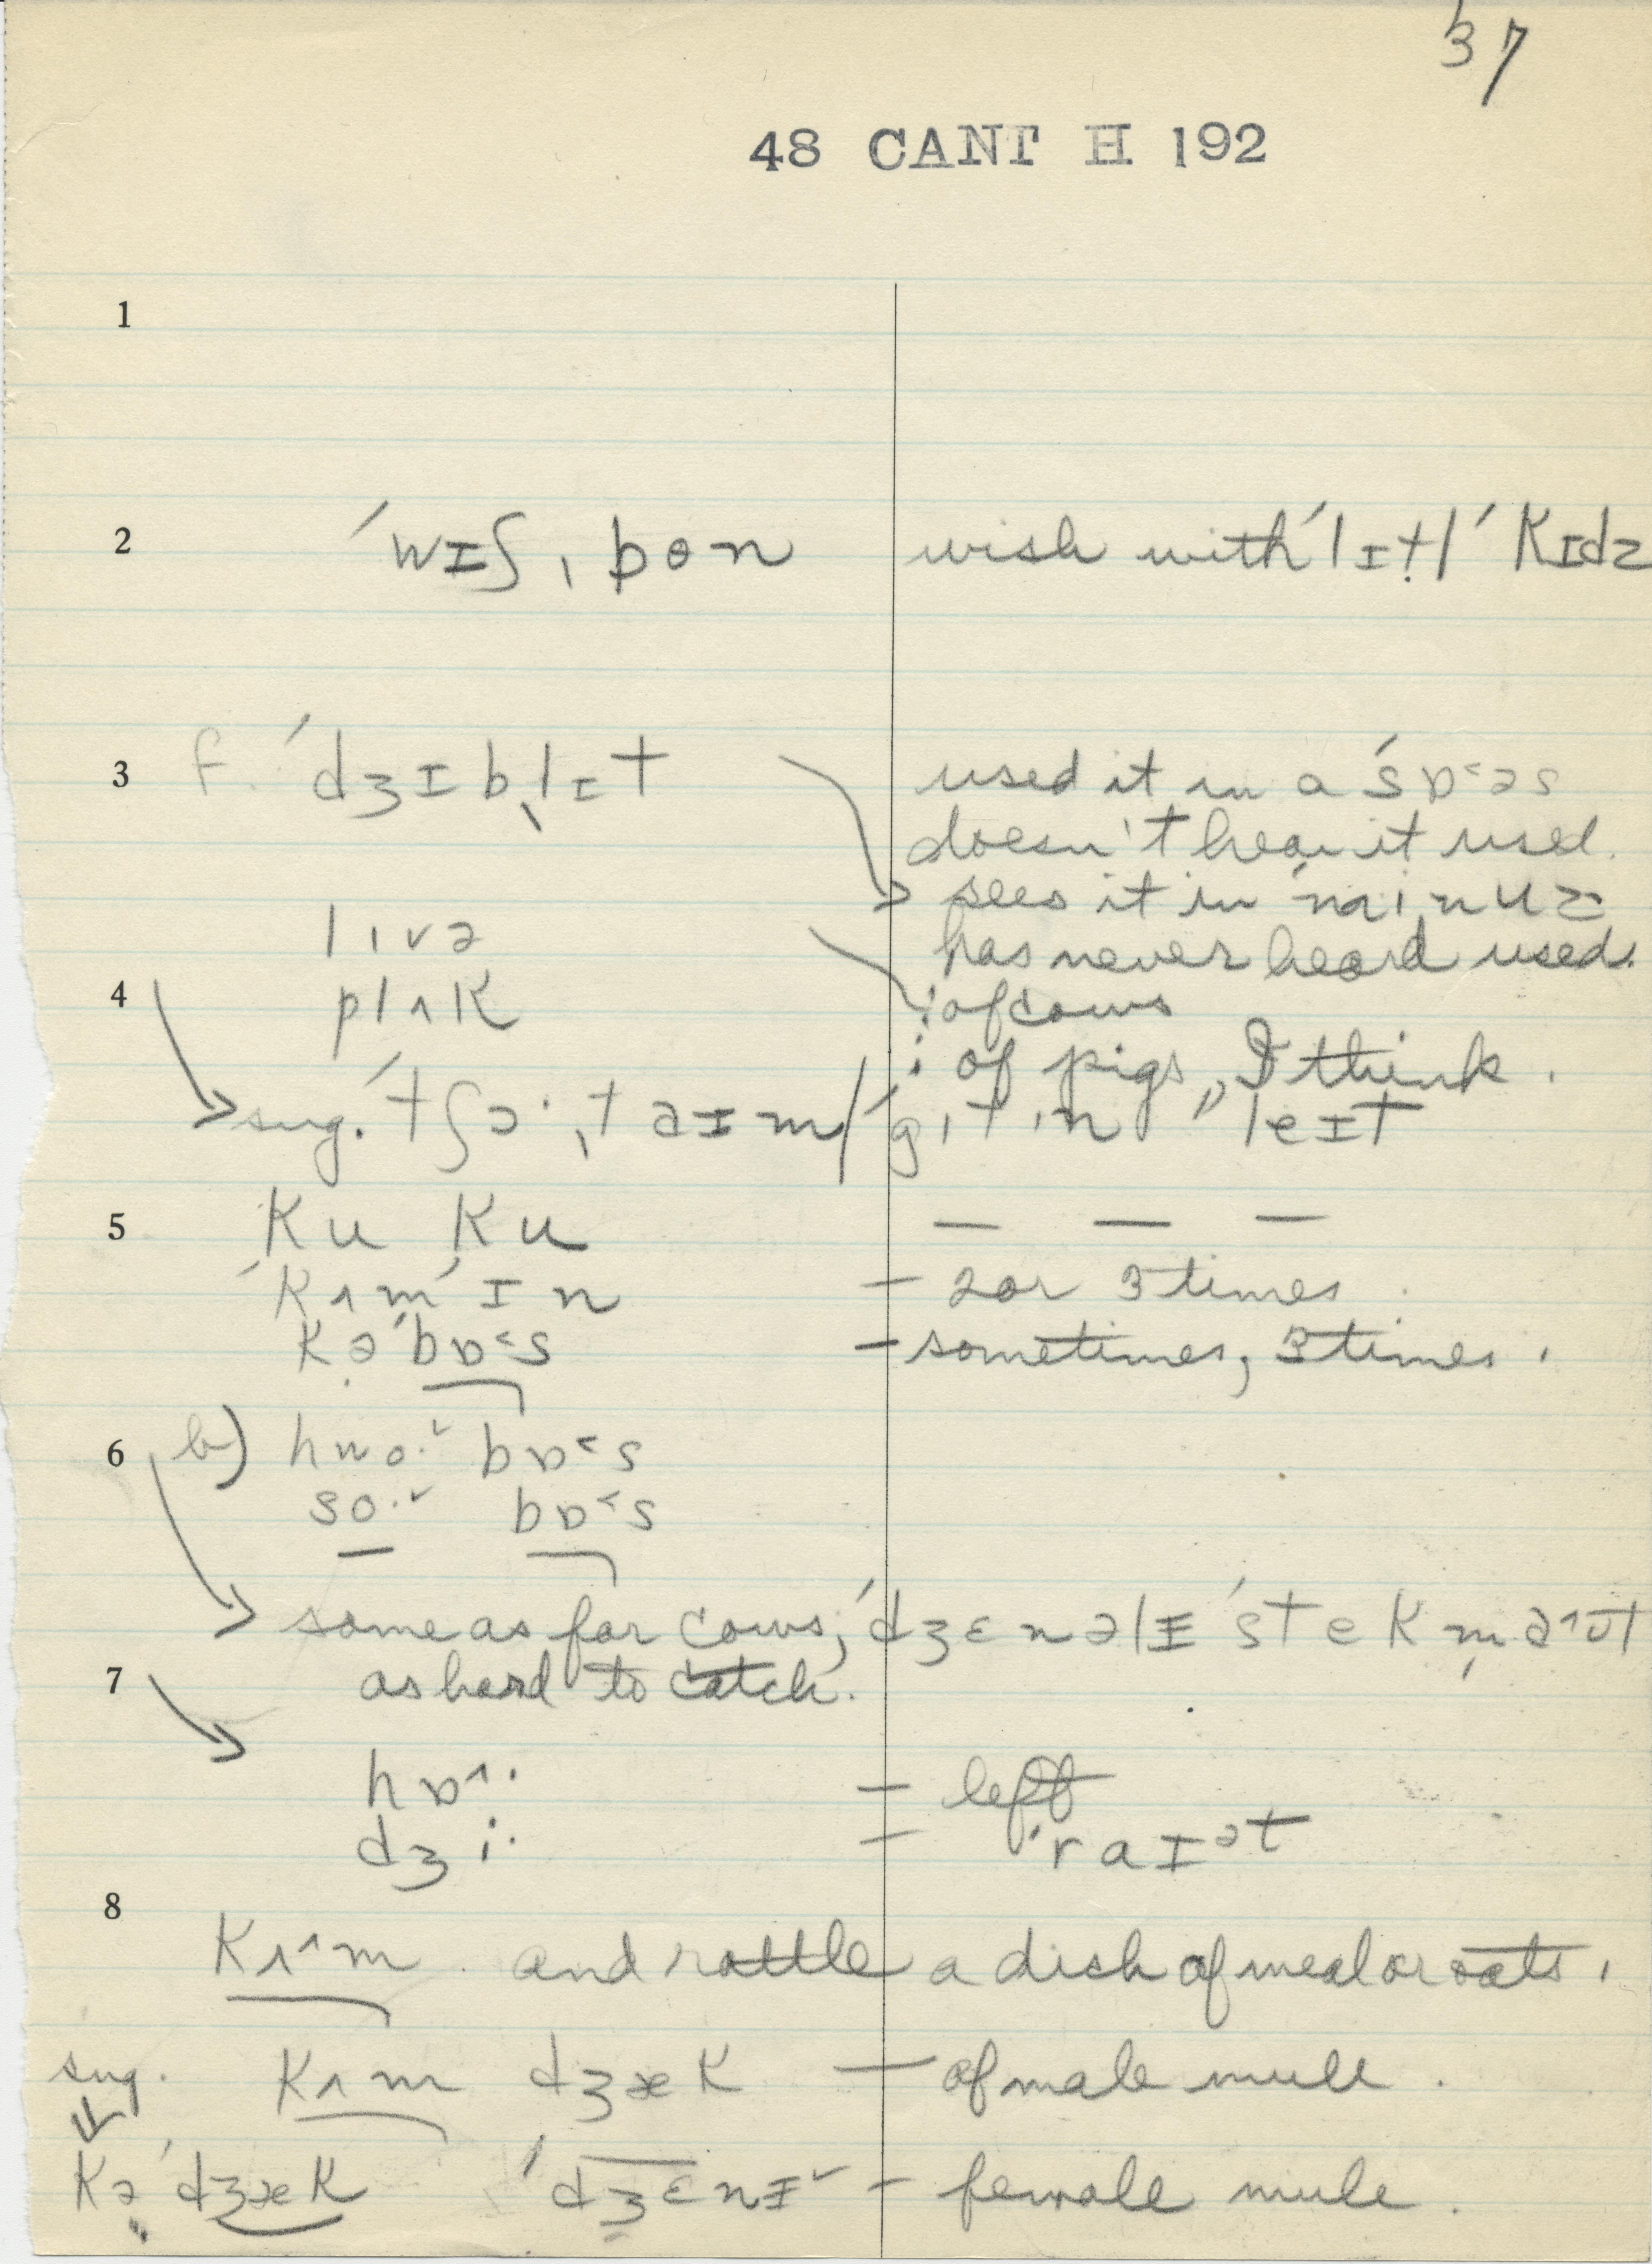 37
48 CANT H 192
1
2 ˈwɪʃˌbon wish with ˈlɪtl̩ ˈkɪdz
3 f. ˈdʒɪblɪt used it in a ˈsɒ˂əs
doesn't hear it used.
sees it in ˈmɪnuz
lɪvə has never heard used.
4 plʌk : of cows
: of pigs, I think.
sug. ˈtʃɔ·ˌtaɪm / ˈgɪtɪn leɪt
5 ku ku — — —
ˈkʌmˈɪn — 2 or 3 times.
kəˈbɒ˂s — sometimes, 3 times.
6 b) hwo·˅ bɒ˂s
so·˅ bɒ˂s
same as for cows; ˈdʒɛnəlɪ ˈstekm̩
7 as hard to catch.
hɒ˄· — left
dʒi· — ˈraɪᵊt
8
kʌ˄m and rattle a dish of meal or oats.
sug. kʌm dʒæk — of male mule.
kəˈdʒæk ˈdʒɛnɪ˅ — female mule.